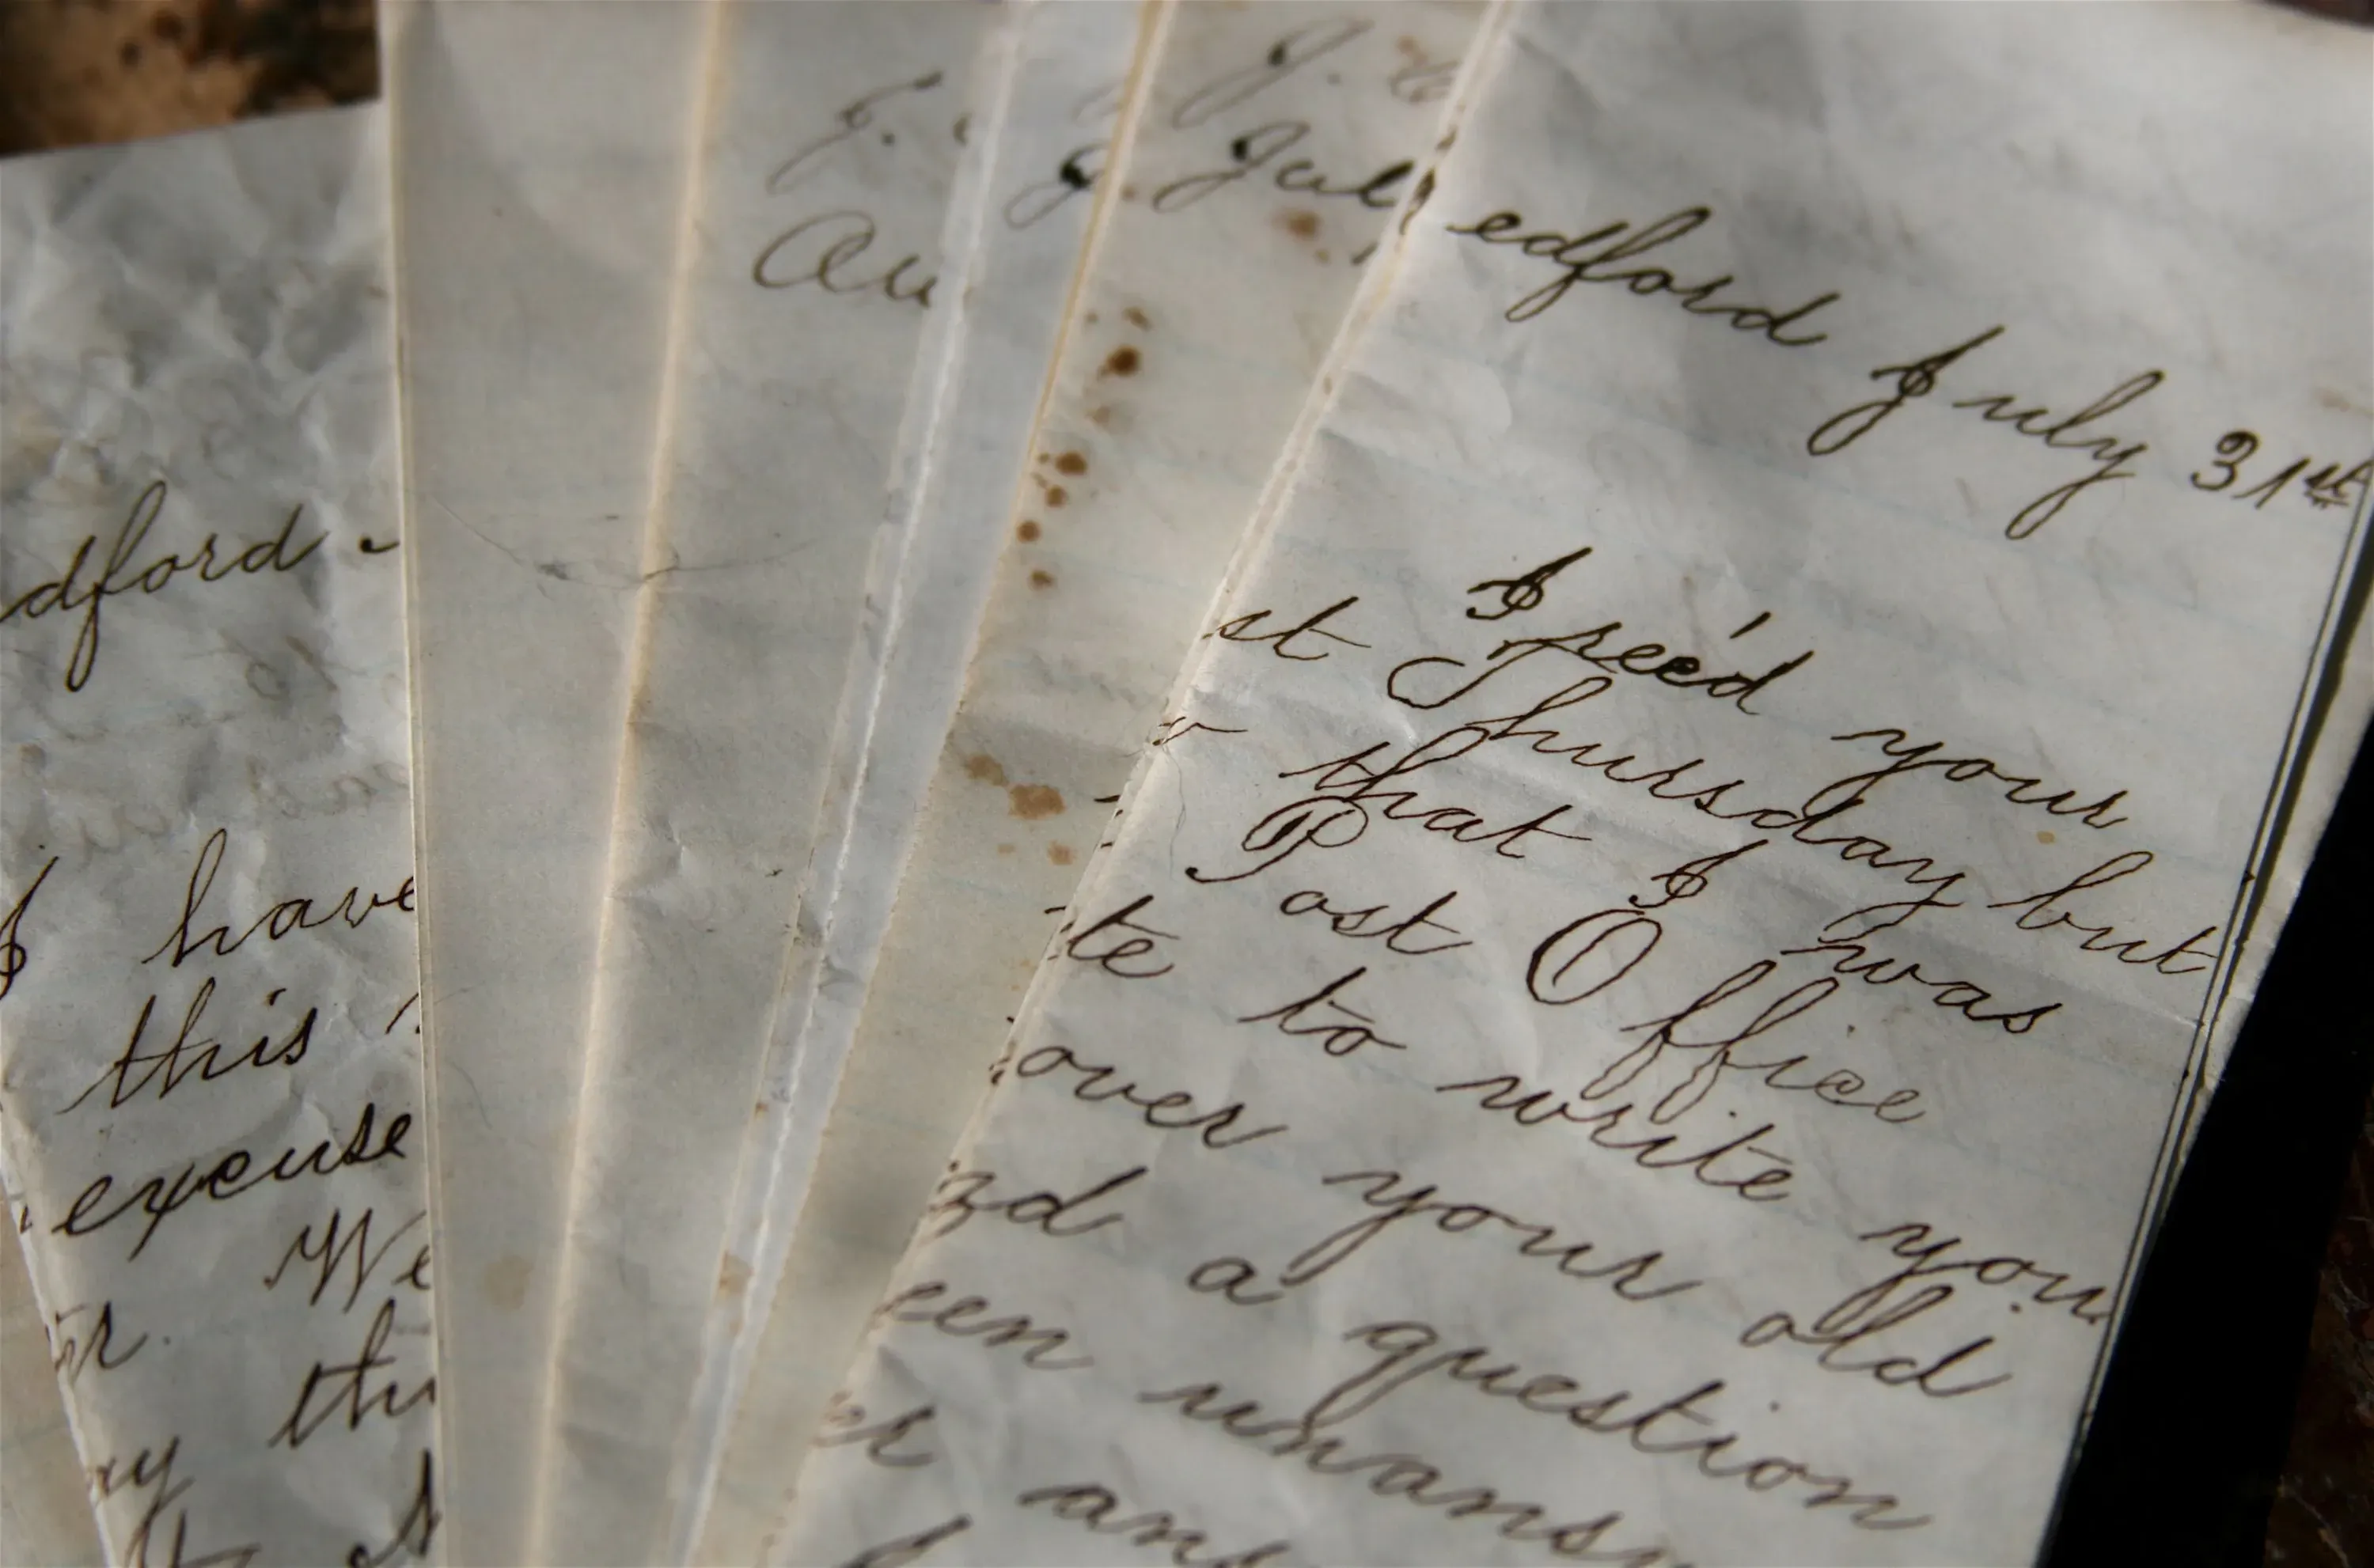 dford -
I have
this
excuse
We
thi
ay
J.
Au
J.
J.
Jul
edford July 31st
I rec'd your
st Thursday but
that I was
Post Office
te to write you
over your old
nd a question
een unans
er ans